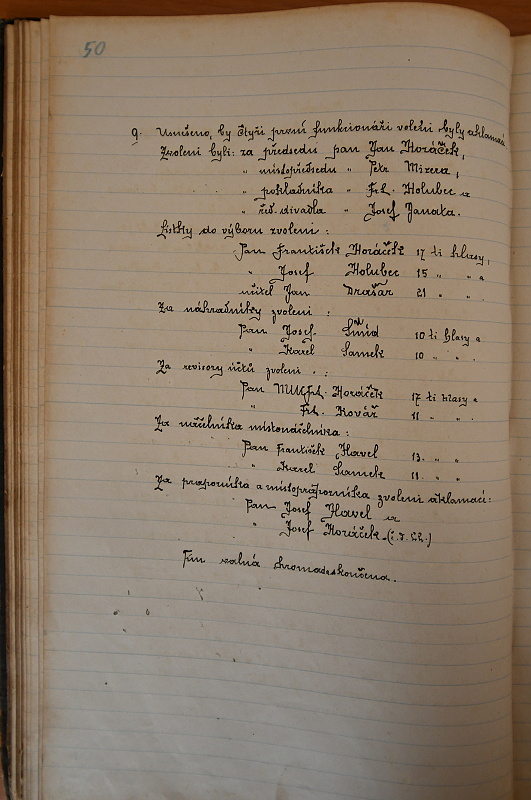 50
9. Usneseno, by čtyři první funkcionáři voleni byly aklamací
Zvoleni byli: za předsedu pan Jan Horáček,
" místopředsedu " Petr Mizera,
" pokladníka " Frt. Holubec a
" řed. divadla " Josef Janata.
Lístky do výboru zvoleni:
Pan František Horáček 17 ti hlasy,
" Josef Holubec 15 " " a
učitel Jan Drašar 21 " " .
Za náhradníky zvoleni:
Pan Josef Šmíd 10 ti hlasy a
" Karel Samek 10 " " .
Za revisory účtů zvoleni:
Pan Frt. Horáček 17 ti hlasy a
" Frt. Kovář 11 " " .
Za náčelníka místonáčelníka:
Pan František Havel 13. " "
" Karel Samek 11. " "
Za praporníka a místopraporníka zvoleni aklamací:
Pan Josef Havel a
" Josef Horáček (č. 22.)
Tím valná hromada skončena.